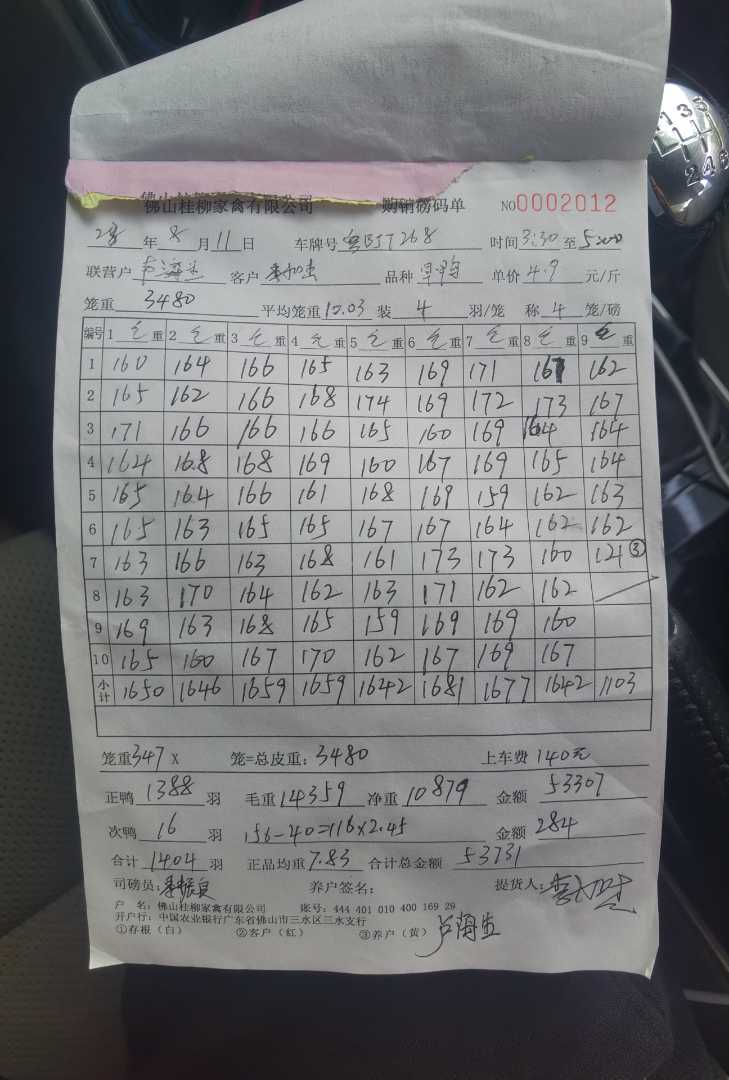 佛山桂柳家禽有限公司 购销磅码单 NO0002012
年 8 月 11 日 车牌号 粤BJT268 时间 3:30 至 5:00
联营户 卢海生 客户 品种 旱鸭 单价 4.9 元/斤
笼重 3480 平均笼重 10.03 装 4 羽/笼 称 4 笼/磅
编号 1 毛重 2 毛重 3 毛重 4 毛重 5 毛重 6 毛重 7 毛重 8 毛重 9 毛重
1 160 164 166 165 163 169 171 167 162
2 165 162 166 168 174 169 172 173 167
3 171 166 166 166 165 160 169 164 164
4 164 168 168 169 160 167 169 165 164
5 165 164 166 161 168 169 159 162 163
6 165 163 165 165 167 167 164 162 162
7 163 166 163 168 161 173 173 160 121 ③
8 163 170 164 162 163 171 162 162
9 169 163 168 165 159 169 169 160
10 165 160 167 170 162 167 169 167
小计 1650 1646 1659 1659 1642 1681 1677 1642 1103
笼重 347 X 笼=总皮重: 3480 上车费 140元
正鸭 1388 羽 毛重 14359 净重 10879 金额 53307
次鸭 16 羽 156-40=116×2.45 金额 284
合计 1404 羽 正品均重 7.83 合计总金额 53731
司磅员: 养户签名: 提货人:
户 名: 佛山桂柳家禽有限公司 账号: 444 401 010 400 169 29
开户行: 中国农业银行广东省佛山市三水区三水支行
①存根(白) ②客户(红) ③养户(黄) 卢海生
1 3 5
2 4 6